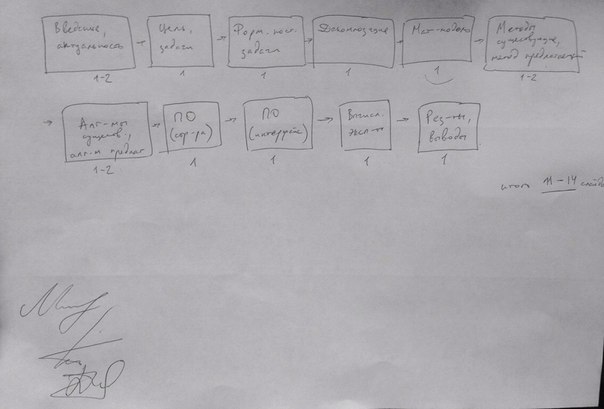 Введение,
актуальность
1-2
Цель,
задачи
1
Форм. пост.
задачи
1
Декомпозиция
1
Мат-модель
1
Методы
существующие,
метод предлагаемый
1-2
Алг-мы
существ.,
алг-м предлаг.
1-2
ПО
(стр-ра)
1
ПО
(интерфейс)
1
Вычисл.
эксп-т
1
Рез-ты,
выводы
1
итого 11-14 слайдов